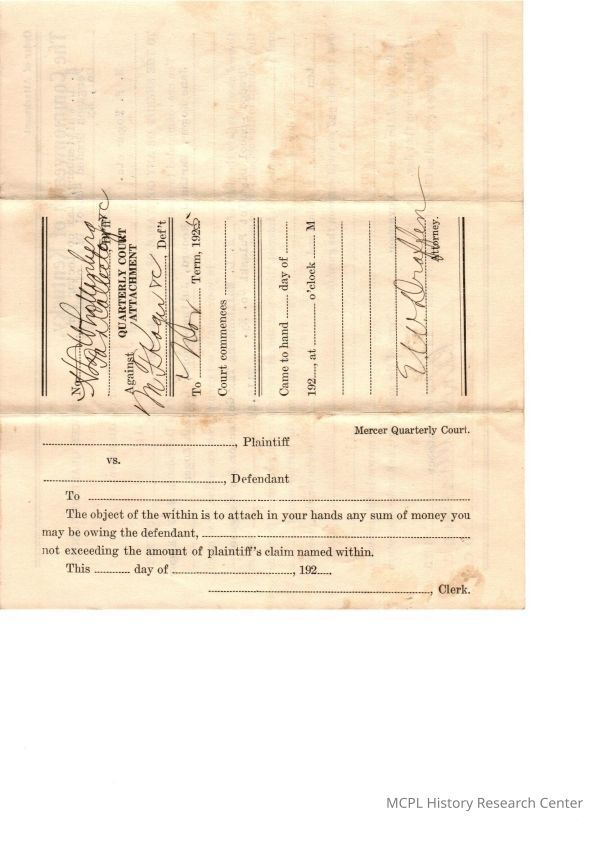 No.
Tax Collector &c
Pl'ff
QUARTERLY COURT
ATTACHMENT
Against
M L Hogue &c
Def't
To Nov Term, 1925
Court commences
Came to hand day of
192 , at o'clock M
E W Draffen
Attorney.
Mercer Quarterly Court.
, Plaintiff
vs.
, Defendant
To
The object of the within is to attach in your hands any sum of money you
may be owing the defendant,
not exceeding the amount of plaintiff's claim named within.
This day of , 192
, Clerk.
MCPL History Research Center